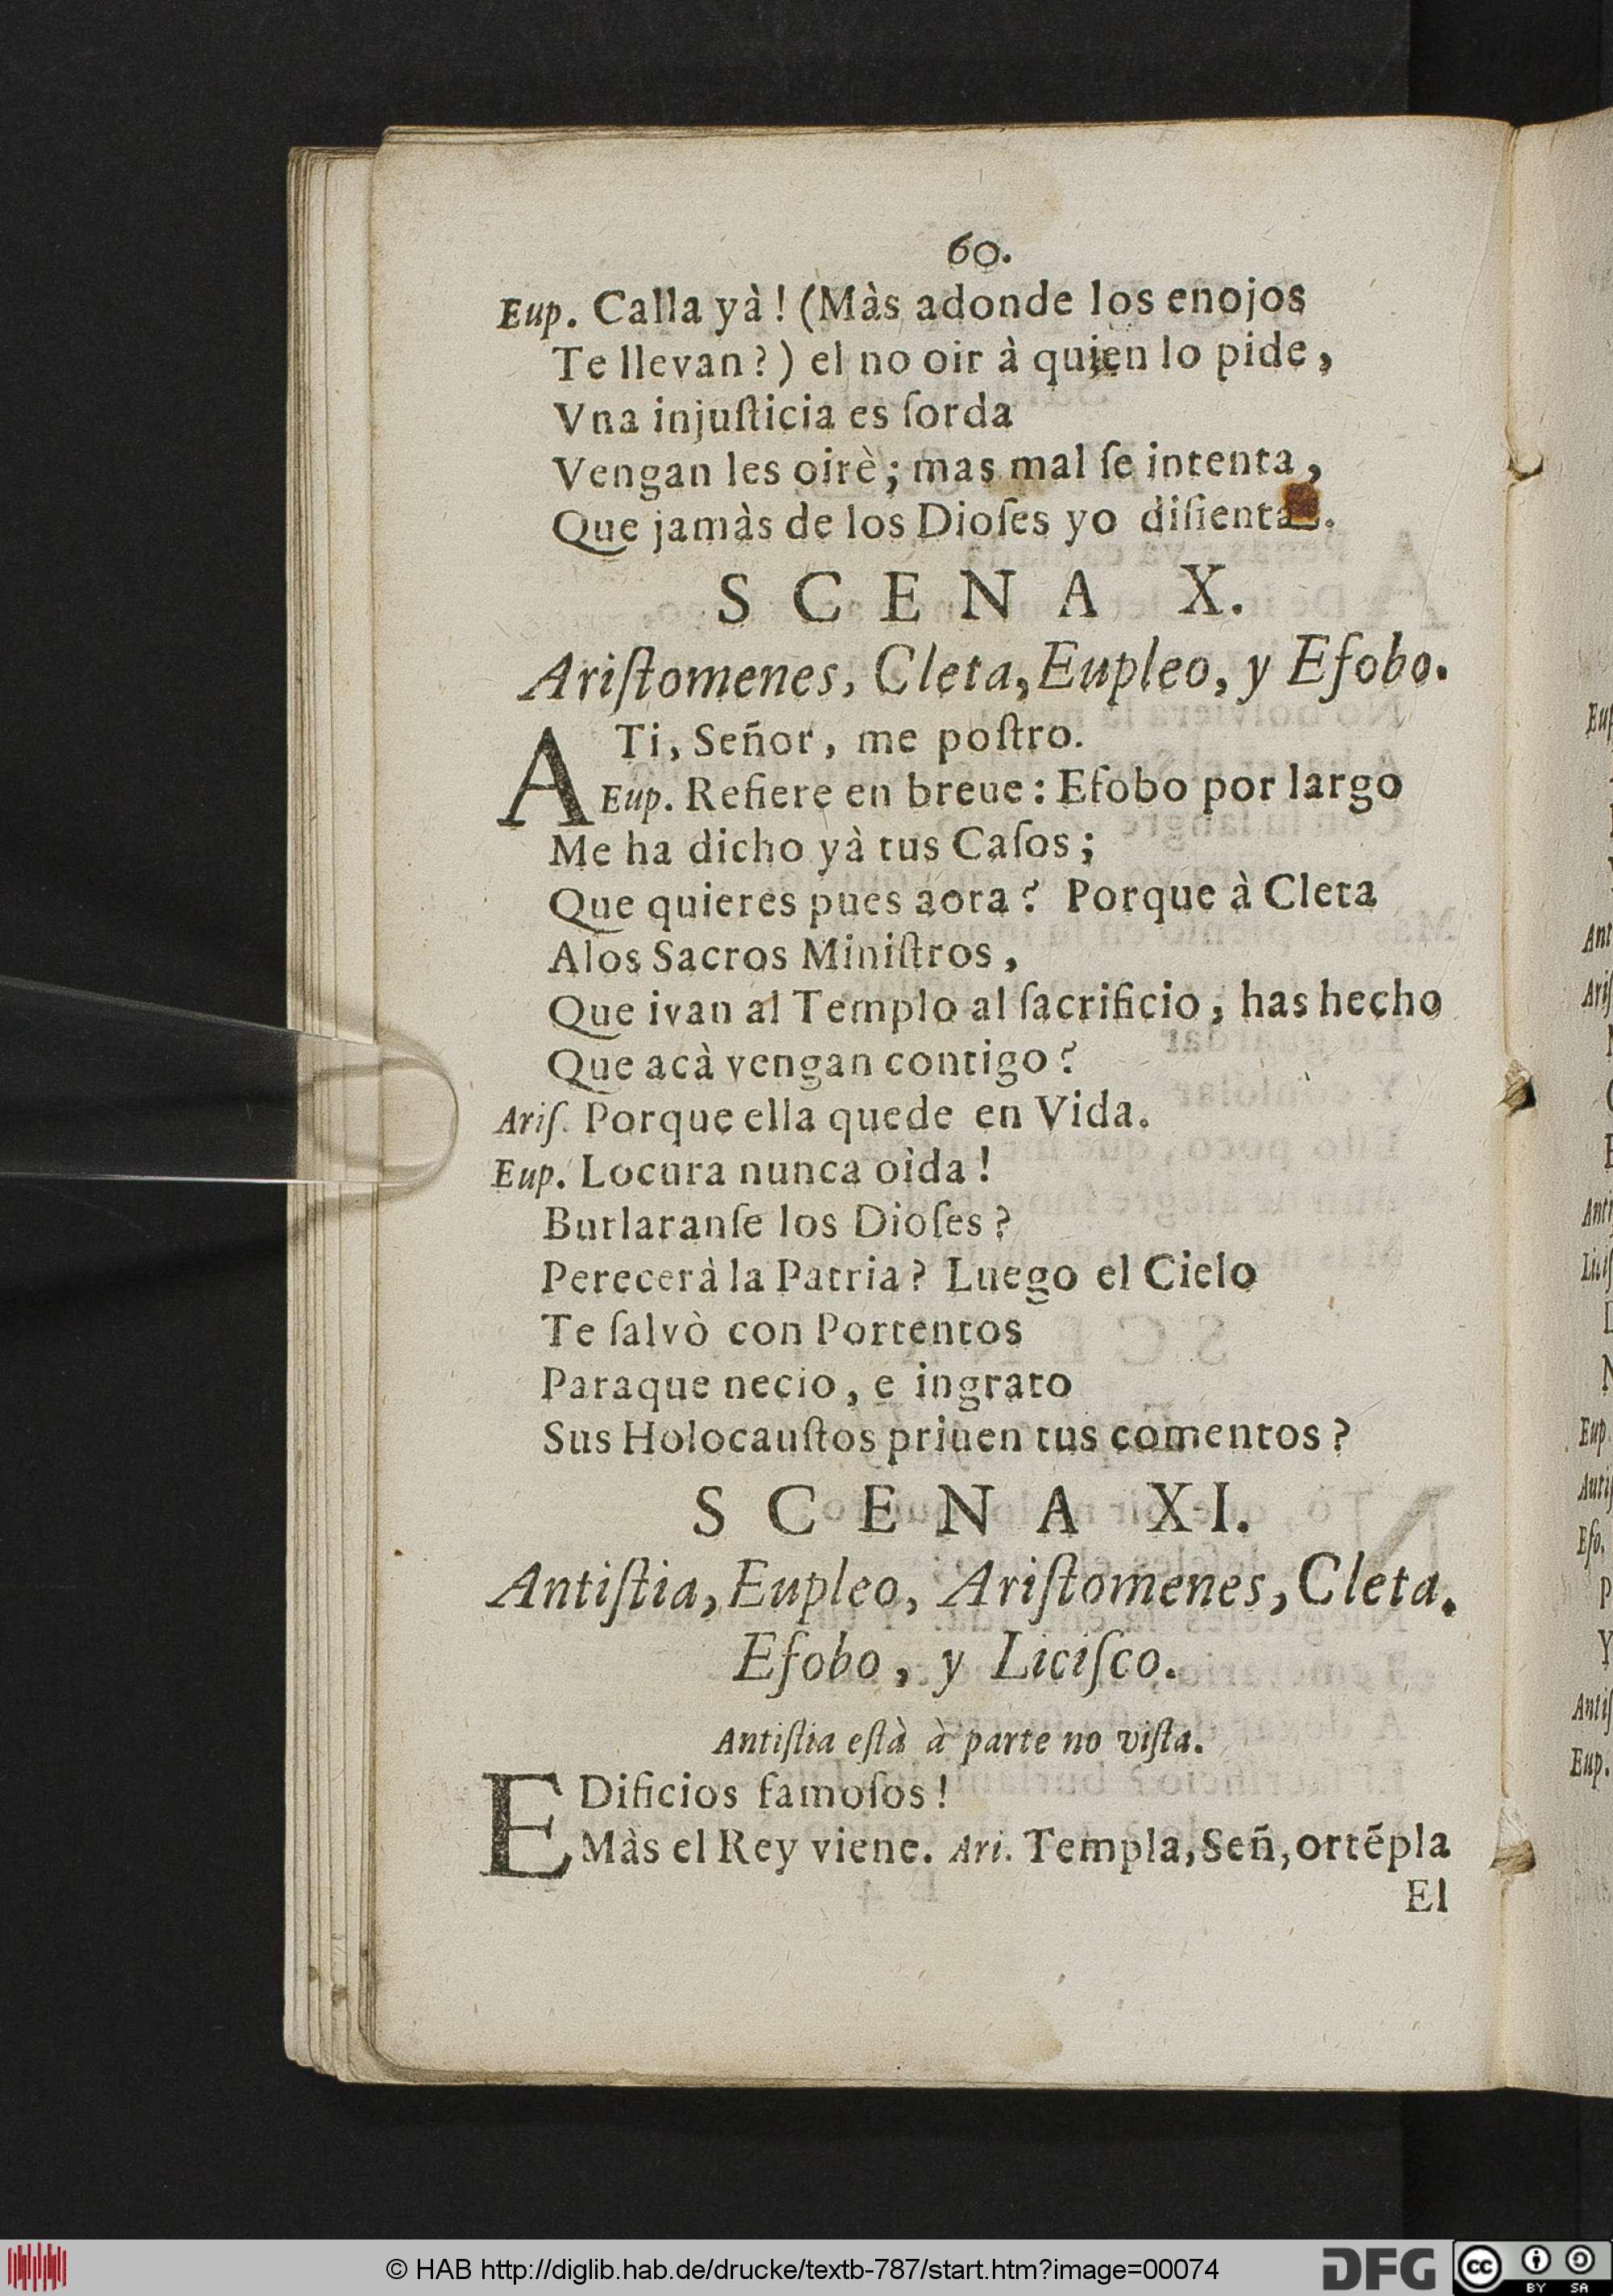 60.
Eup. Calla yà! (Màs adonde los enojos
Te llevan?) el no oir à quien lo pide,
Vna injuſticia es ſorda
Vengan les oirè; mas mal ſe intenta,
Que jamàs de los Dioſes yo diſienta.
SCENA X.
Ariſtomenes, Cleta, Eupleo, y Efobo.
A Ti, Señor, me poſtro.
Eup. Refiere en breue: Efobo por largo
Me ha dicho yà tus Caſos;
Que quieres pues aora? Porque à Cleta
Alos Sacros Miniſtros,
Que ivan al Templo al ſacrificio, has hecho
Que acà vengan contigo?
Ariſ. Porque ella quede en Vida.
Eup. Locura nunca oìda!
Burlaranſe los Dioſes?
Perecerà la Patria? Luego el Cielo
Te ſalvò con Portentos
Paraque necio, e ingrato
Sus Holocauſtos priuen tus comentos?
SCENA XI.
Antiſtia, Eupleo, Ariſtomenes, Cleta.
Efobo, y Liciſco.
Antiſtia eſtà à parte no viſta.
EDificios famoſos!
Màs el Rey viene. Ari. Templa, Señ,ortẽpla
El
Eup
Ant
Ariſ
Anti
Liciſ
Eup
Antiſ
Efo.
P
Y
Antiſ
Eup.
© HAB http://diglib.hab.de/drucke/textb-787/start.htm?image=00074
DFG
cc
BY SA